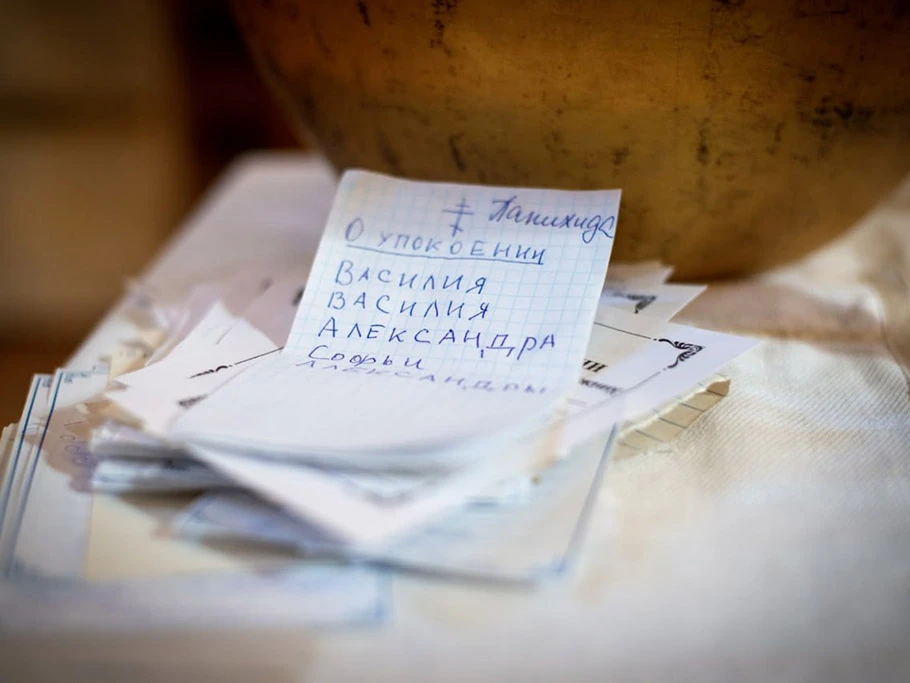 Панихида
О упокоении
Василия
Василия
Александра
Софьи
Александры